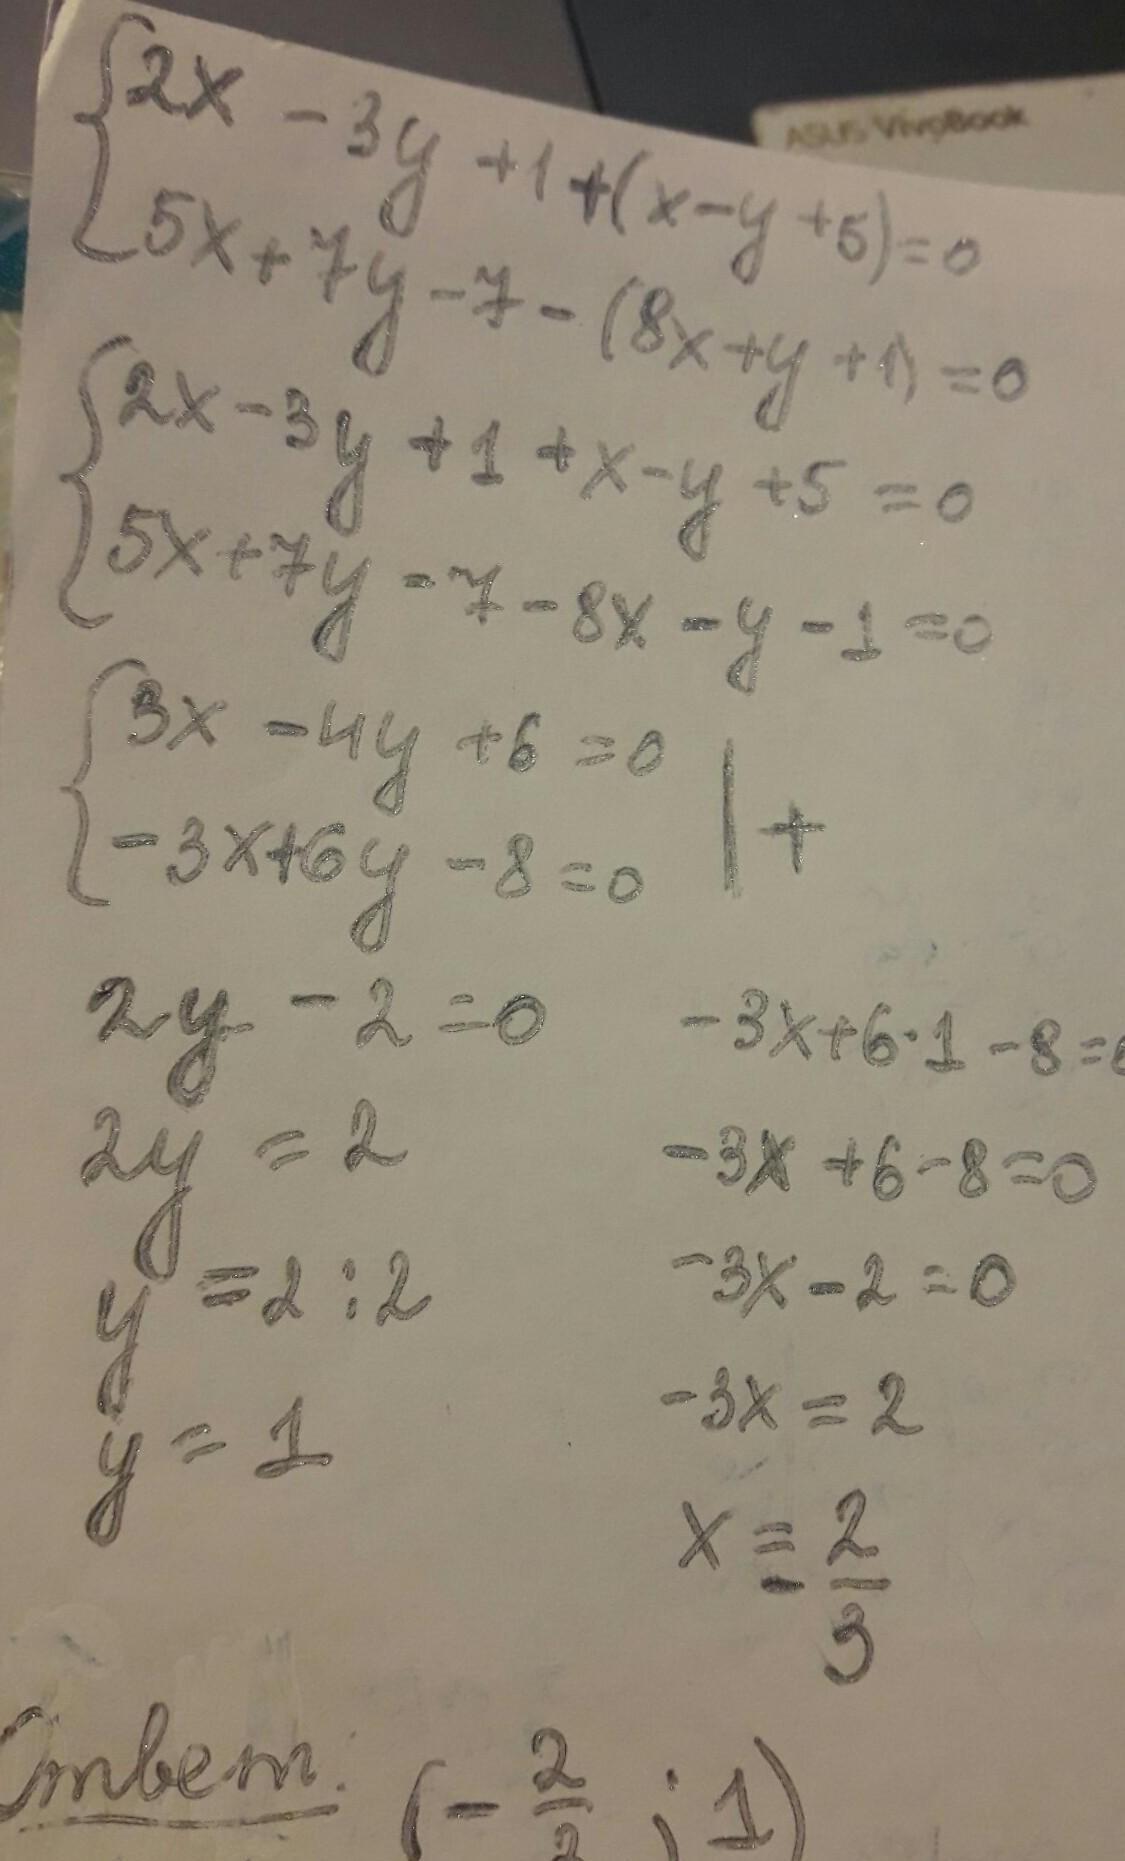 ASUS VivoBook
{2x - 3y + 1 + (x - y + 5) = 0
5x + 7y - 7 - (8x + y + 1) = 0
{2x - 3y + 1 + x - y + 5 = 0
5x + 7y - 7 - 8x - y - 1 = 0
{3x - 4y + 6 = 0
-3x + 6y - 8 = 0 | +
2y - 2 = 0
2y = 2
y = 2 : 2
y = 1
-3x + 6 · 1 - 8 = 0
-3x + 6 - 8 = 0
-3x - 2 = 0
-3x = 2
x = - 2/3
Ответ: (- 2/3 ; 1)